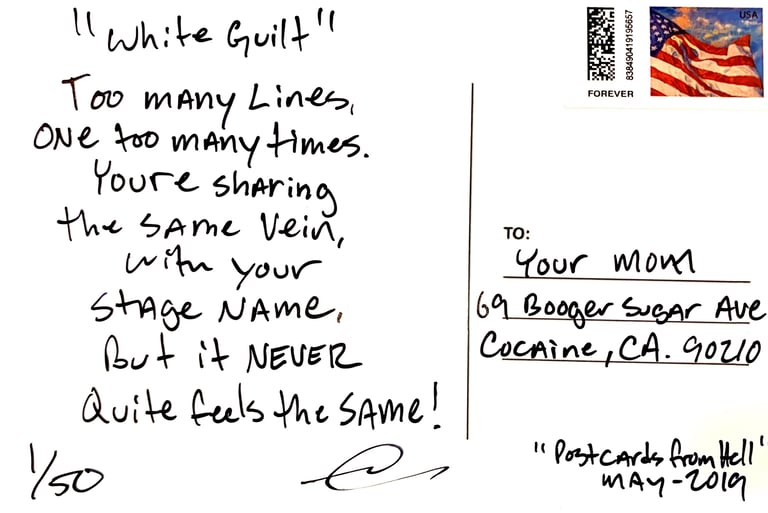 "White Guilt"
Too many Lines,
one too many times.
Youre sharing
the same vein,
with your
stage name,
But it NEVER
Quite feels the same!
1/50
FOREVER
838490419195667
USA
TO:
Your mom
69 Booger Sugar Ave
Cocaine, CA. 90210
"Postcards from Hell"
MAY-2019